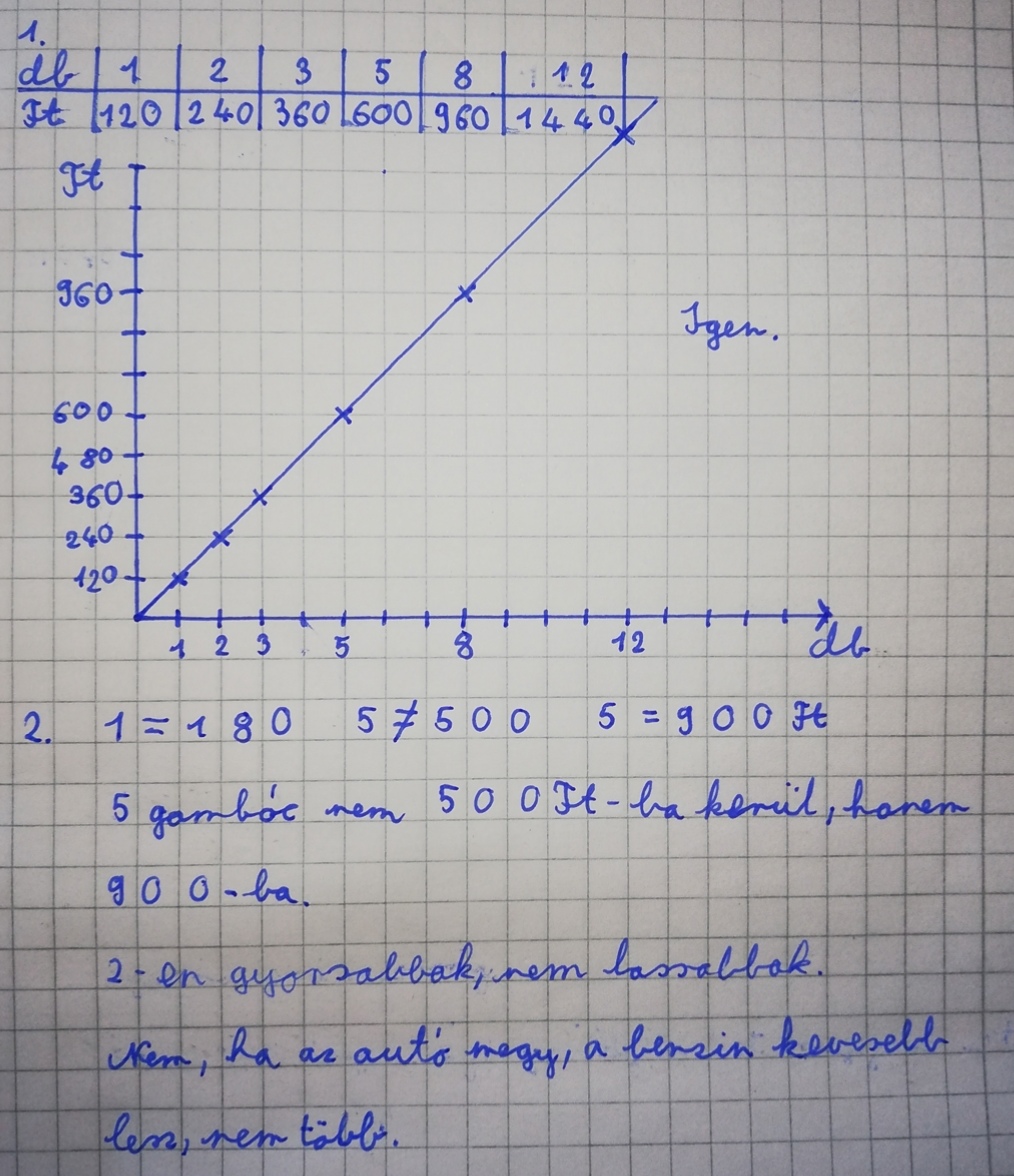 1.
db 1 2 3 5 8 12
Ft 120 240 360 600 960 1440
Ft
960
Igen.
600
480
360
240
120
1 2 3 5 8 12 db
2. 1 = 180 5 ≠ 500 5 = 900 Ft
5 gombóc nem 500 Ft-ba kerül, hanem
900-ba.
2-en gyorsabbak, nem lassabbak.
Nem, ha az autó megy, a benzin kevesebb
lesz, nem több.